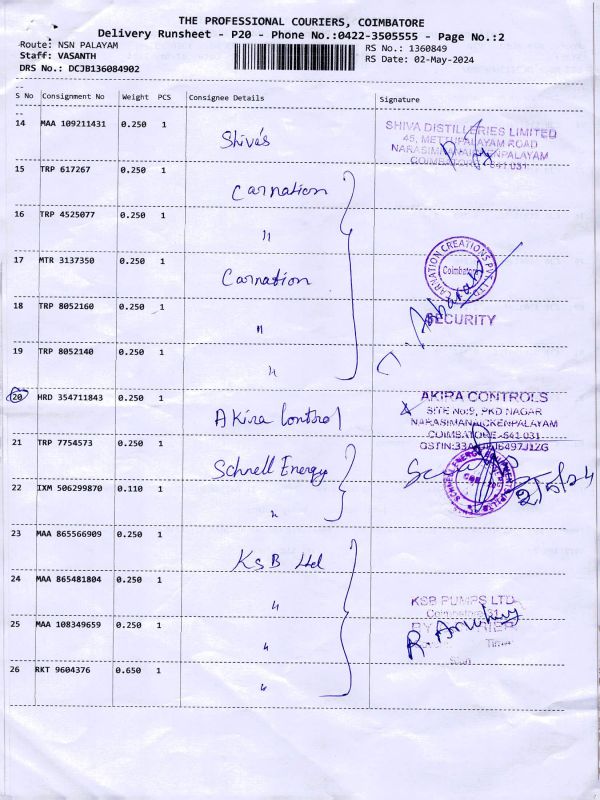 THE PROFESSIONAL COURIERS, COIMBATORE
Delivery Runsheet - P20 - Phone No.:0422-3505555 - Page No.:2
Route: NSN PALAYAM
Staff: VASANTH
DRS No.: DCJB136084902
RS No.: 1360849
RS Date: 02-May-2024
S No Consignment No Weight PCS Consignee Details Signature
14 MAA 109211431 0.250 1 Shiva's
SHIVA DISTILLERIES LIMITED
45, METTUPALAYAM ROAD
15 TRP 617267 0.250 1 Carnation
16 TRP 4525077 0.250 1 "
17 MTR 3137350 0.250 1 Carnation
CARNATION CREATIONS PVT LTD
Coimbatore
18 TRP 8052160 0.250 1 "
SECURITY
19 TRP 8052140 0.250 1 "
20 HRD 354711843 0.250 1 Akira Control
AKIRA CONTROLS
SITE No:9, PKD NAGAR
NARASIMANAICKENPALAYAM
COIMBATORE-641 031
21 TRP 7754573 0.250 1 Schnell Energy
2/5/24
22 IXM 506299870 0.110 1 "
23 MAA 865566909 0.250 1 KSB Ltd
24 MAA 865481804 0.250 1 "
KSB PUMPS LTD
Coimbatore-31
25 MAA 108349659 0.250 1 "
26 RKT 9604376 0.650 1 "